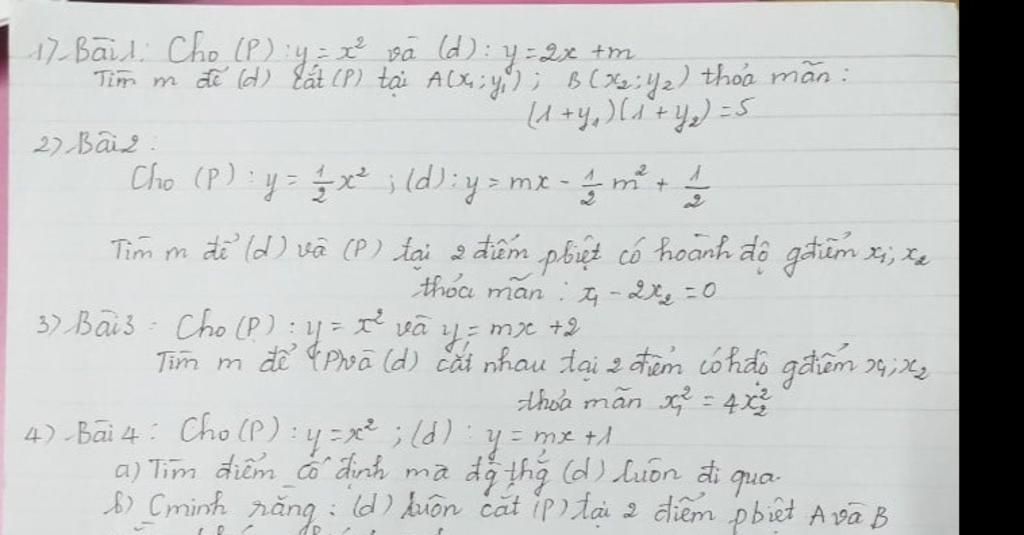 1) Bài 1: Cho (P): y = x² và (d): y = 2x + m
Tìm m để (d) cắt (P) tại A(x₁; y₁); B(x₂; y₂) thỏa mãn:
(1 + y₁)(1 + y₂) = 5
2) Bài 2:
Cho (P): y = 1/2 x² ; (d): y = mx - 1/2 m² + 1/2
Tìm m để (d) và (P) tại 2 điểm pbiệt có hoành độ gđiểm x₁; x₂
thỏa mãn: x₁ - 2x₂ = 0
3) Bài 3: Cho (P): y = x² và y = mx + 2
Tìm m để (P) và (d) cắt nhau tại 2 điểm có hđộ gđiểm x₁; x₂
thỏa mãn x₁² = 4x₂²
4) Bài 4: Cho (P): y = x² ; (d): y = mx + 1
a) Tìm điểm cố định mà đg thg (d) luôn đi qua.
b) Cminh rằng: (d) luôn cắt (P) tại 2 điểm pbiệt A và B